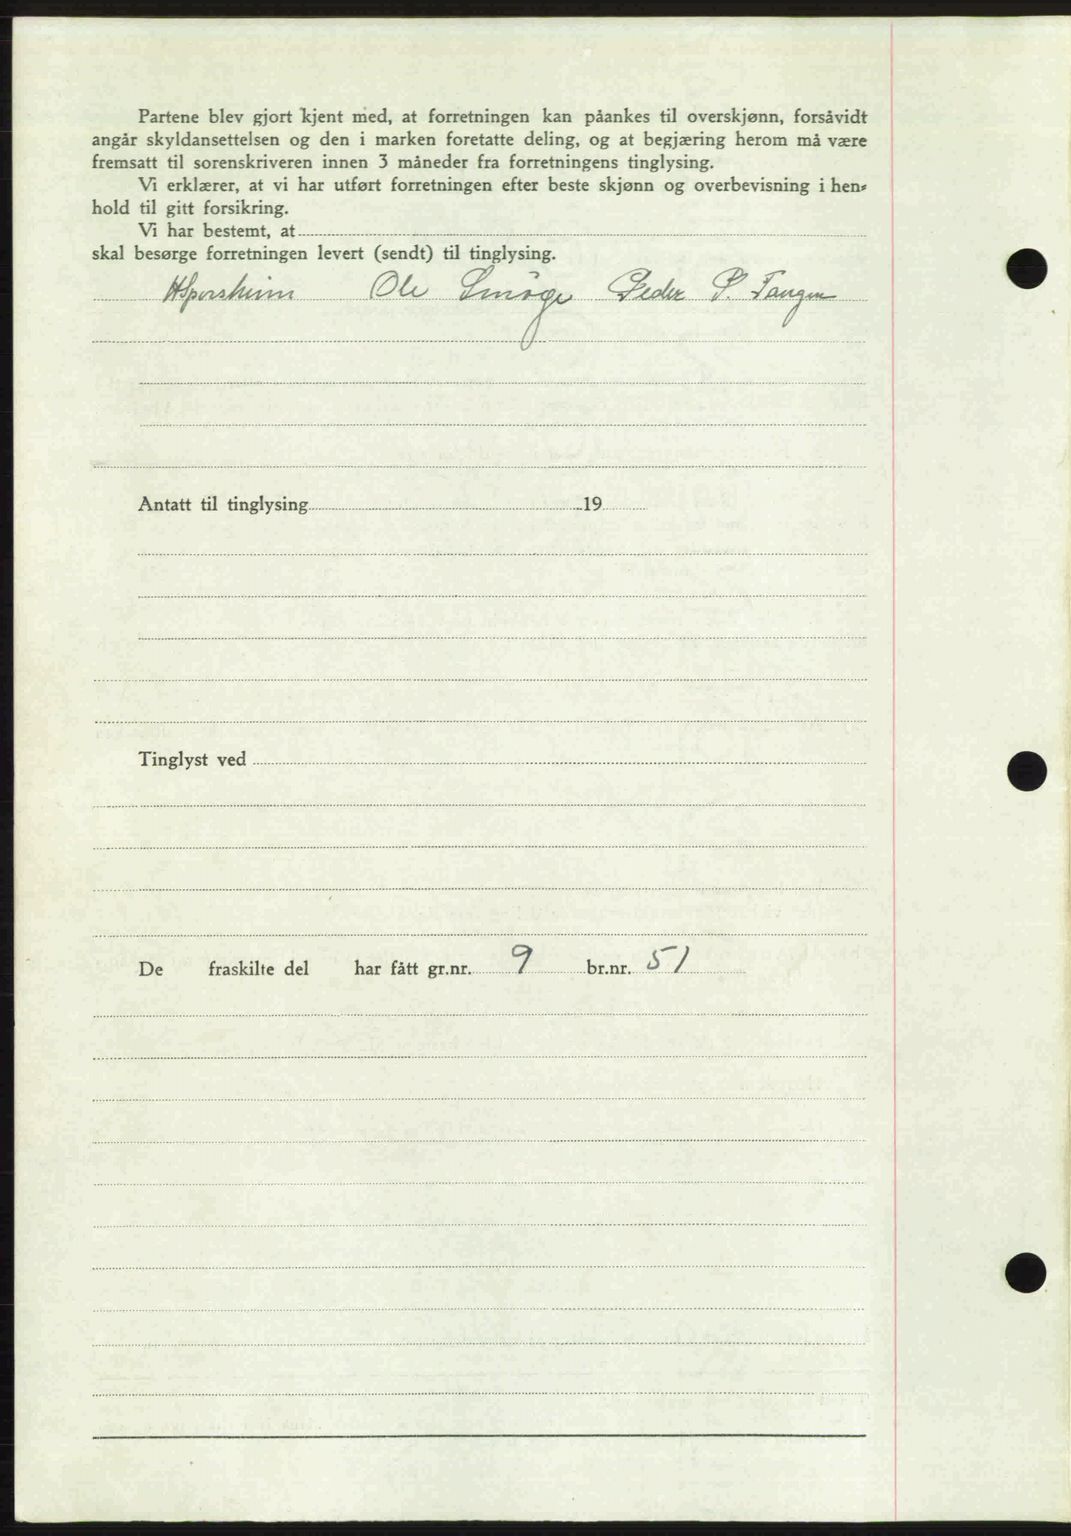 Partene blev gjort kjent med, at forretningen kan påankes til overskjønn, forsåvidt
angår skyldansettelsen og den i marken foretatte deling, og at begjæring herom må være
fremsatt til sorenskriveren innen 3 måneder fra forretningens tinglysing.
Vi erklærer, at vi har utført forretningen efter beste skjønn og overbevisning i hen-
hold til gitt forsikring.
Vi har bestemt, at
skal besørge forretningen levert (sendt) til tinglysing.
Ole Smöge Peder P. Tangen
Antatt til tinglysing 19
Tinglyst ved
De fraskilte del har fått gr.nr. 9 br.nr. 51